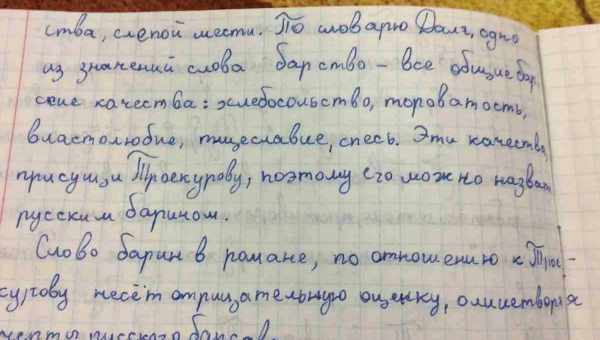 ства, слепой мести. По словарю Даля, одно
из значений слова барство – все общие бар
ские качества: хлебосольство, тороватость,
властолюбие, тщеславие, спесь. Эти качества,
присущи Троекурову, поэтому его можно назвать
русским барином.
Слово барин в романе, по отношению к Трое-
курову несёт отрицательную оценку, олицетворяя
черты русского барства.